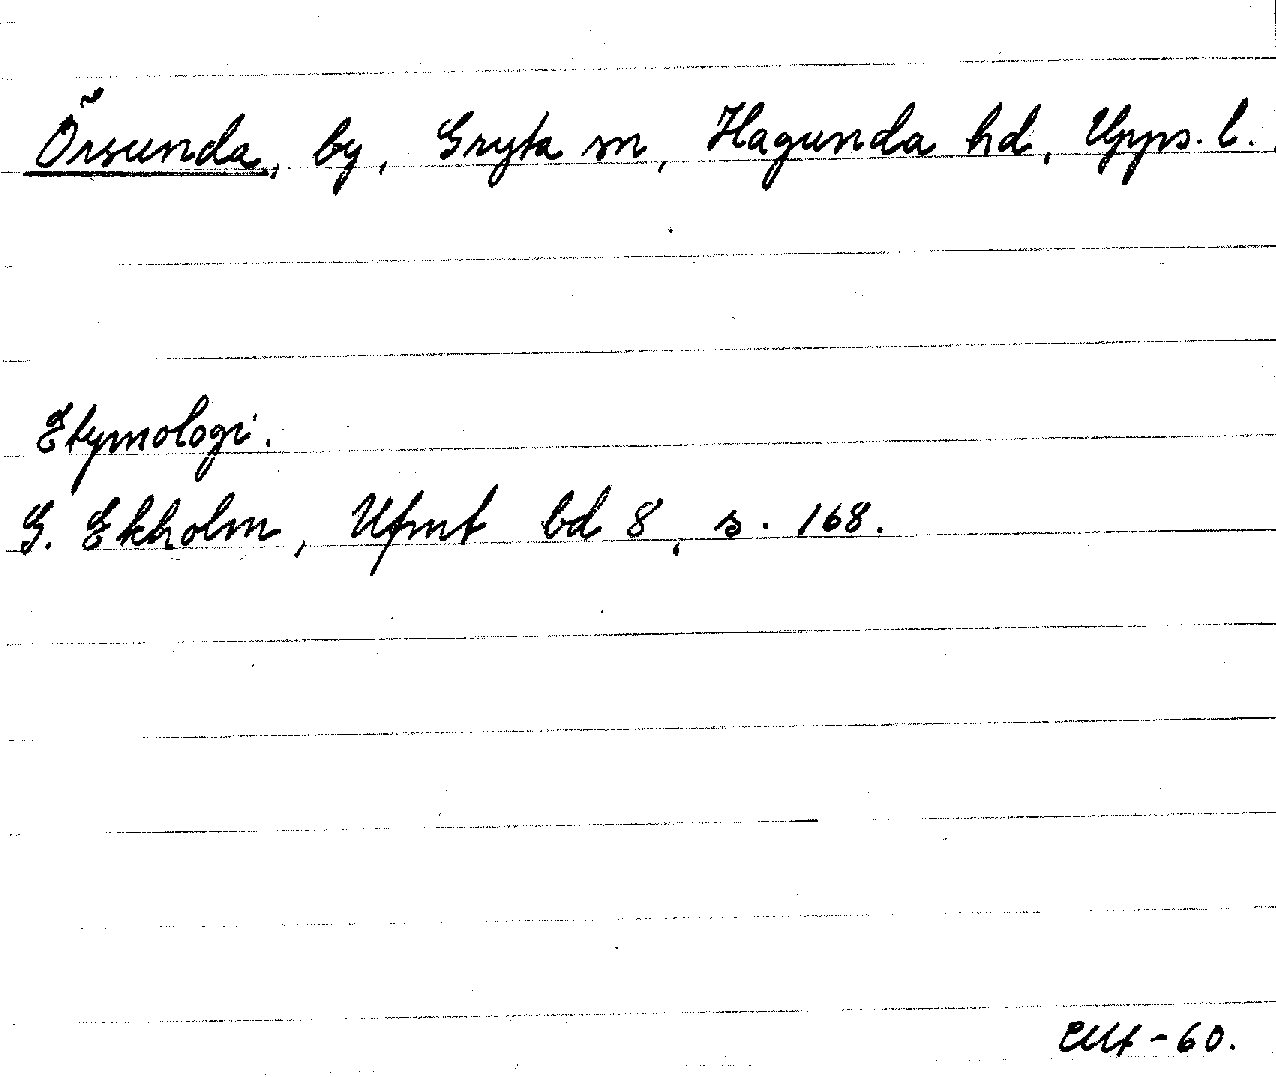 Örsunda, by, Gryta sn, Hagunda hd, Upps. l.
Etymologi.
G. Ekholm, Ufmt bd 8, s. 168.
-60.